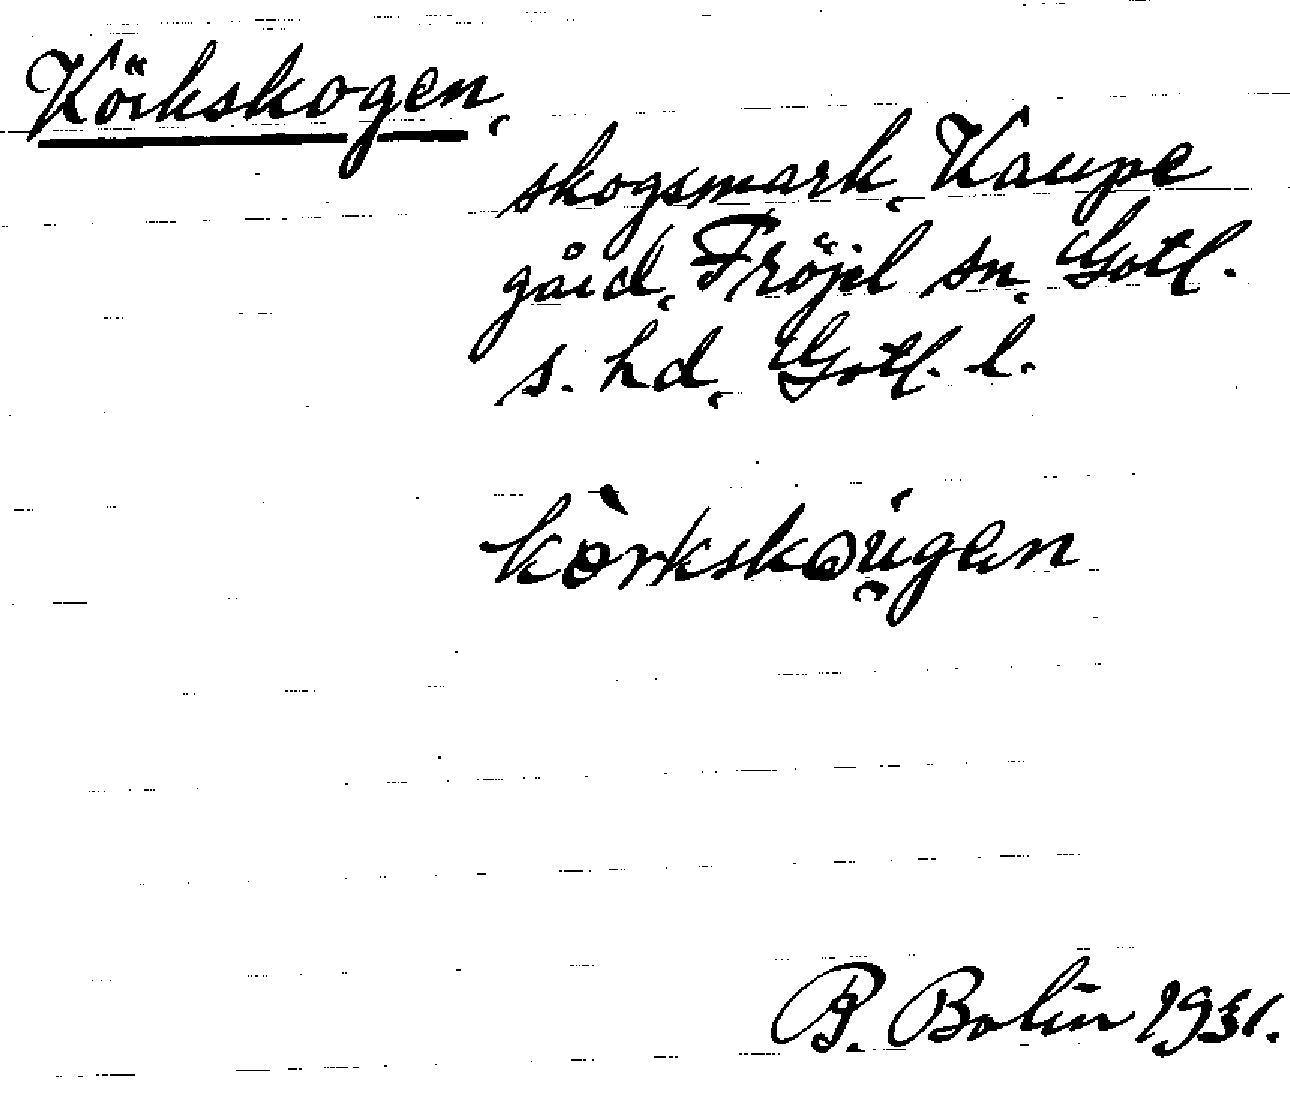 Körkskogen,
skogsmark, Kaupe
gård, Fröjel sn, Gotl.
s. hd, Gotl. l.
kə̀rkskəú̯gən
B. Bolin 1931.